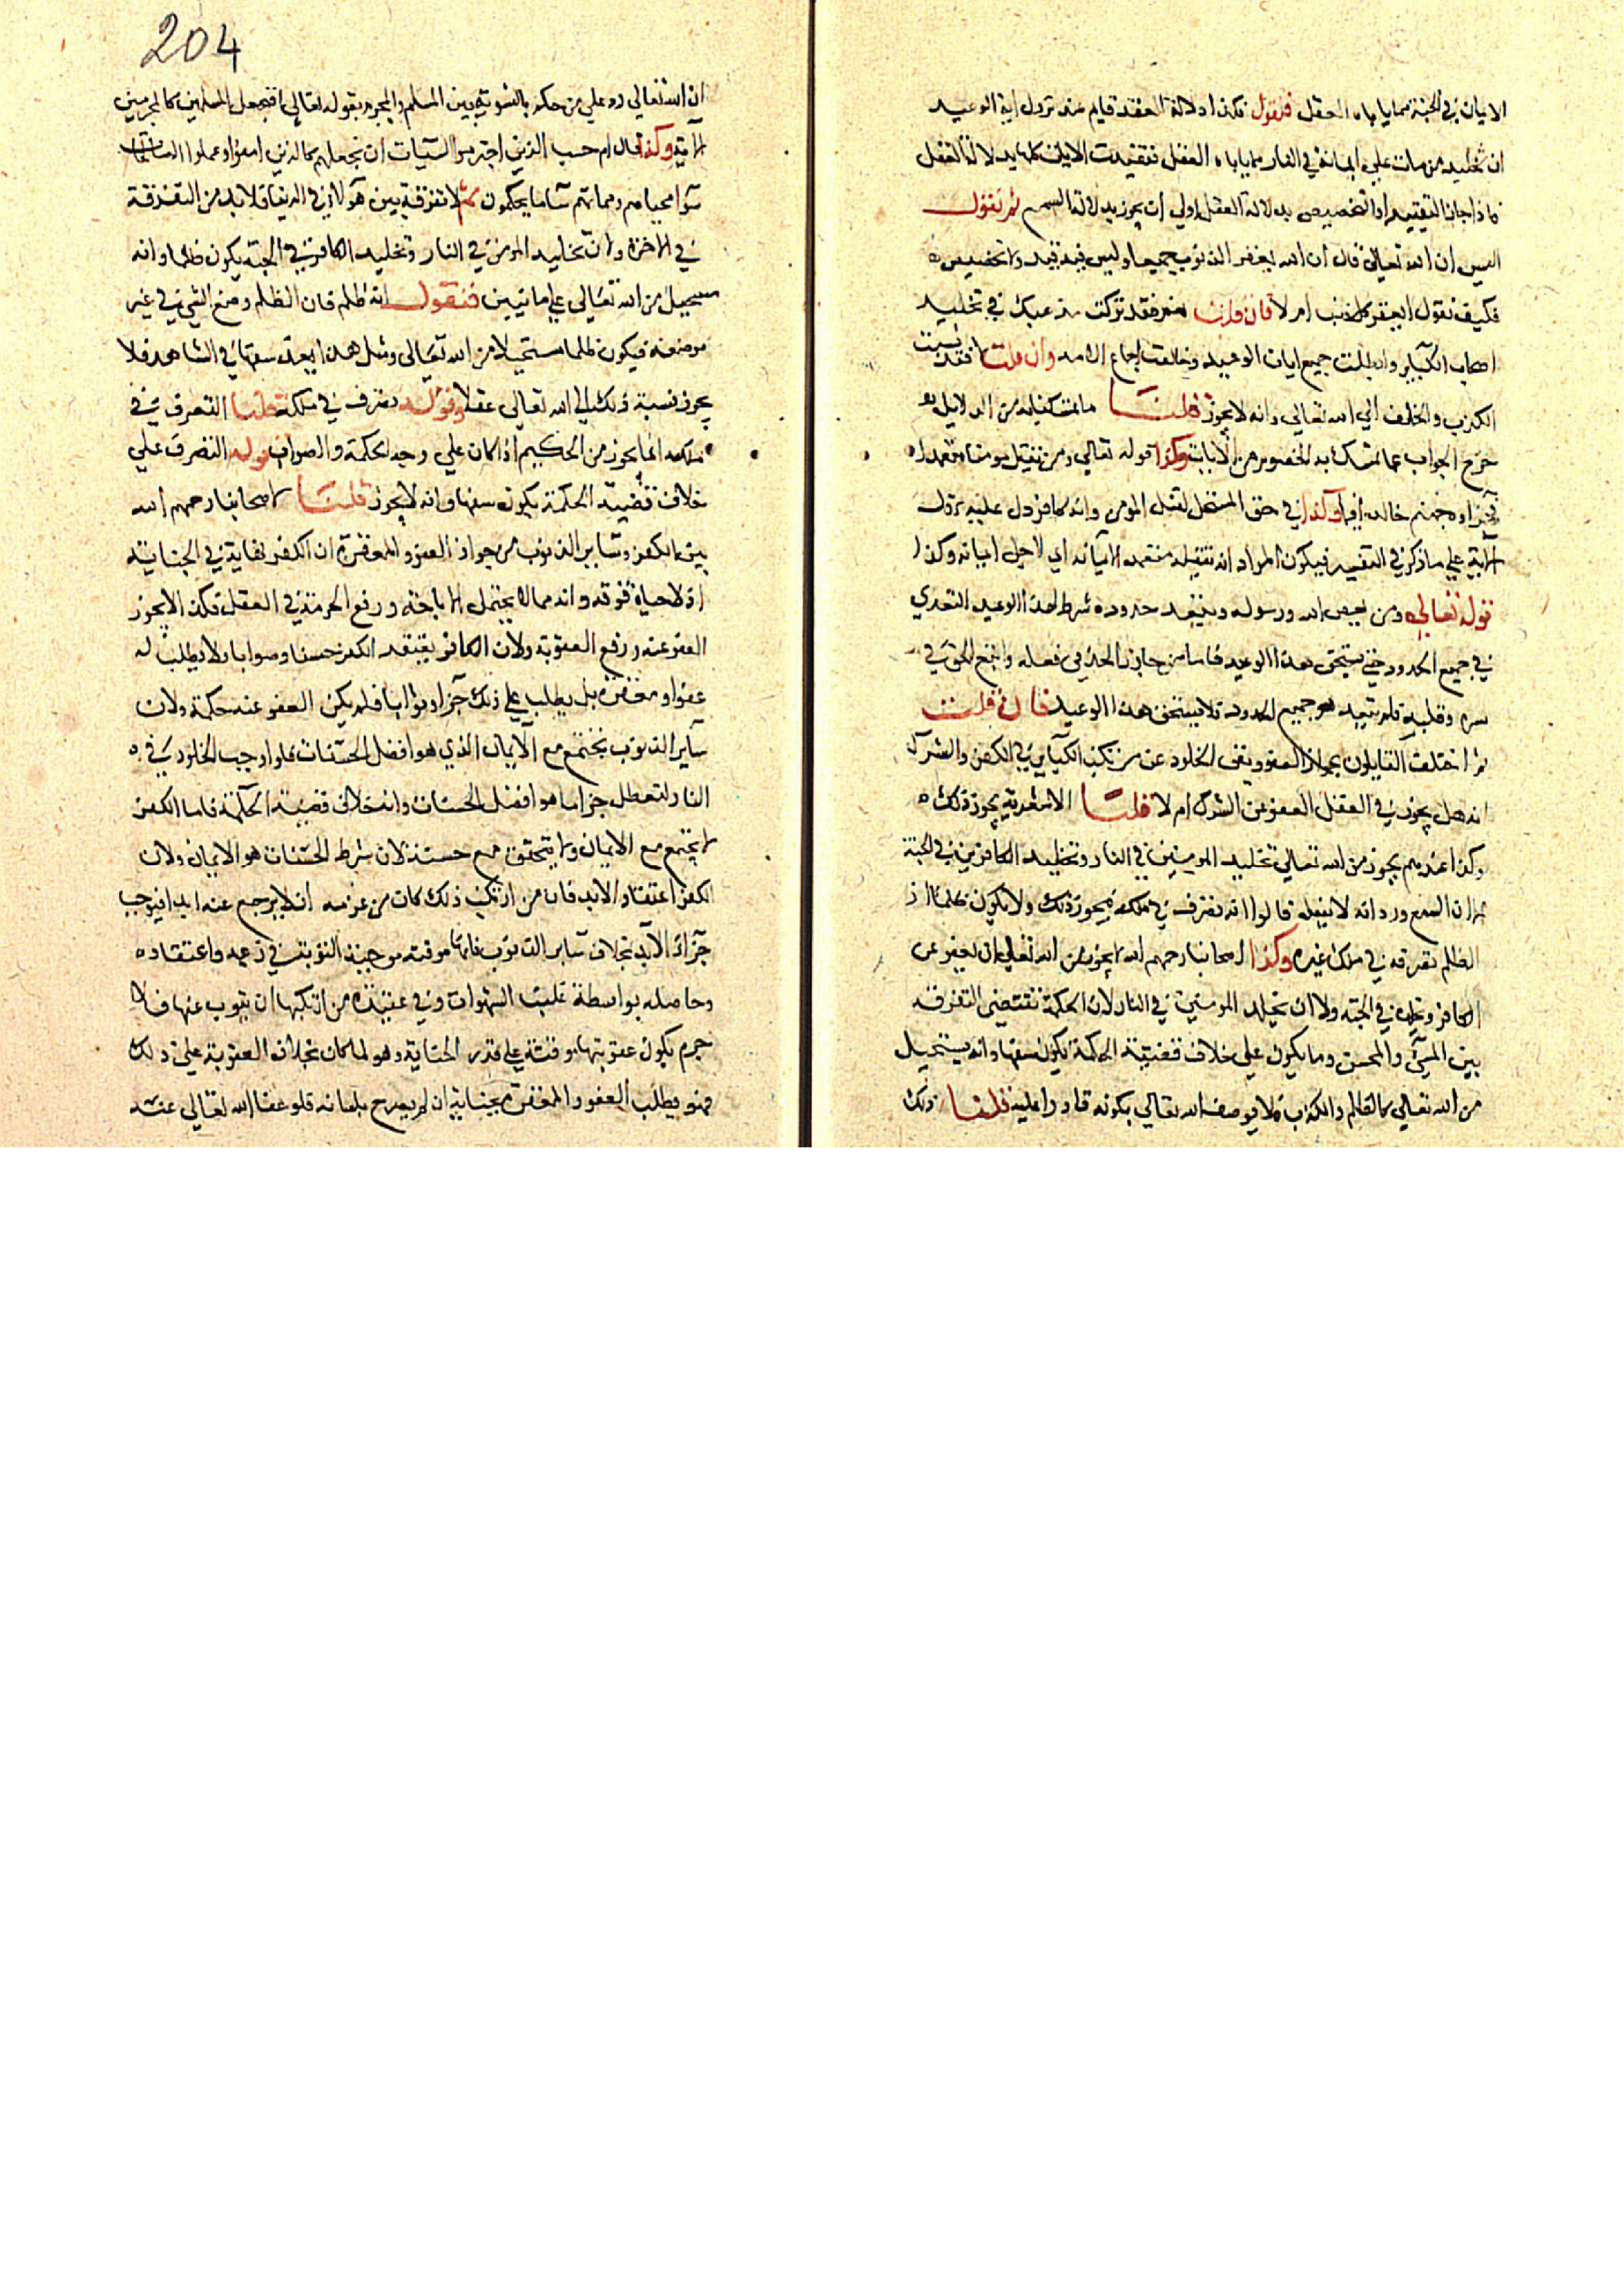 الايمان في الجنة مما ياباه العقل فنقول فكذا دلالة العقل قايم عند نزول اية الوعيد
ان تخليد من مات على ايمانه في النار مما ياباه العقل فتقيدت الايات كلها بدلالة العقل
فاذا جاز التقييد او التخصيص بدلالة العقل اولى ان يجوز بدلالة السمع ثم نقول
اليس ان الله تعالى قال ان الله يغفر الذنوب جميعا وليس فيه قيد ولا تخصيص
فكيف نقول ايغفر كل ذنب ام لا فان قلت نعم فقد تركت مذهبك في تخليد
اصحاب الكباير وابطلت جميع ايات الوعيد وخالفت اجماع الامة وان قلت لا فقد نسبت
الكذب والخلف الى الله تعالى وانه لا يجوز قلنا ما تمسكنا به من الدلايل
خرج الجواب عما تمسك به الخصوم من الايات وكذا قوله تعالى ومن يقتل مومنا متعمدا
فجزاوه جهنم خالدا فيها وكذا في حق المستحل لقتل المومن وانه كافر دل عليه نزول
الاية على ما ذكر في التفسير فيكون المراد انه تقتيله متعمدا لايمانه اي لاجل ايمانه وكذا
قوله تعالى ومن يعص الله ورسوله ويتعد حدوده شرط لهذا الوعيد التعدي
في جميع الحدود حتى يستحق هذا الوعيد فاما من جانب الحق في فعله واتبع الحق في
سره وقلبه فلم يتعد هو جميع الحدود فلا يستحق هذا الوعيد فان قلت
ثم اختلف القايلون بجواز العفو ونفى الخلود عن مرتكب الكباير في الكفر والشرك
انه هل يجوز في العقل العفو عن الشرك ام لا قلنا الاشعرية يجوز ذلك
وكذا عندهم يجوز من الله تعالى تخليد المومنين في النار وتخليد الكافرين في الجنة
الا ان السمع ورد انه لا يفعله قالوا انه تصرف في ملكه فيجوز ذلك ولا يكون ظلما اذ
الظلم تصرفه في ملك غيره وكذا اصحابنا رحمهم الله لا يجوز من الله تعالى ان يعفو عن
الكافر وتخليده في الجنة ولا ان يخلد المومنين في النار لان الحكمة تقتضي التفرقة
بين المسئ والمحسن وما يكون على خلاف قضية الحكمة يكون سفها وانه يستحيل
من الله تعالى كالظلم والكذب فلا يوصف الله تعالى بكونه قادرا عليه قلنا ذلك
204
ان الله تعالى رد على من حكم بالتسوية بين المسلم والمجرم بقوله تعالى افنجعل المسلمين كالمجرمين
الاية وكذا قال ام حسب الذين اجترحوا السيات ان نجعلهم كالذين امنوا وعملوا الصالحات
سوا محياهم ومماتهم سا ما يحكمون ثم لا تفرقة بين هولا في الدنيا فلا بد من التفرقة
في الاخرة ولان تخليد المومن في النار وتخليد الكافر في الجنة يكون ظلما وانه
يستحيل من الله تعالى على ما تبين فنقول انه ظلم فان الظلم وضع الشي في غير
موضعه فيكون ظلما مستحيلا من الله تعالى ومثل هذا يعد سفها في الشاهد فلا
يجوز نسبة ذلك الى الله تعالى عقلا وقوله تصرف في ملكه قلنا التصرف في
ملكه انما يجوز من الحكيم اذا كان على وجه الحكمة والصواب قوله التصرف على
خلاف قضية الحكمة يكون سفها وانه لا يجوز قلنا لاصحابنا رحمهم الله
بين الكفر وساير الذنوب من جواز العفو والمغفرة ان الكفر نهاية في الجناية
اذ لا جناية فوقه وانه مما لا يحتمل الاباحة ورفع الحرمة في العقل فكذا لا يجوز
العفو عنه ورفع العقوبة ولان الكافر يعتقد الكفر حسنا وصوابا ولا يطلب له
عفوا ومغفرة بل يطلب على ذلك جزا وثوابا فلم يكن العفو عنه حكمة ولان
ساير الذنوب يجتمع مع الايمان الذي هو افضل الحسنات فلو اوجب الخلود في
النار لتعطل جزا ما هو افضل الحسنات وانه خلاف قضية الحكمة فاما الكفر
لا يجتمع مع الايمان ولا يتحقق مع حسنة لان شرط الحسنات هو الايمان ولان
الكفر اعتقاد الابد فان من ارتكب ذلك كان من عزمه ان لا يرجع عنه ابدا فيوجب
جزا الابد بخلاف ساير الذنوب فانها موقتة موجبة التوبة في زعمه واعتقاده
وحاصله بواسطة غلبة الشهوات وفي عقيدة من ارتكبها ان يتوب عنها فلا
جرم يكون عقوبتها موقتة على قدر الجناية وهو لما كان بخلاف العقوبة على ذلك
فهو يطلب العفو والمغفرة بجنايته ان لم يصرح بلسانه فلو عفا الله تعالى عنه